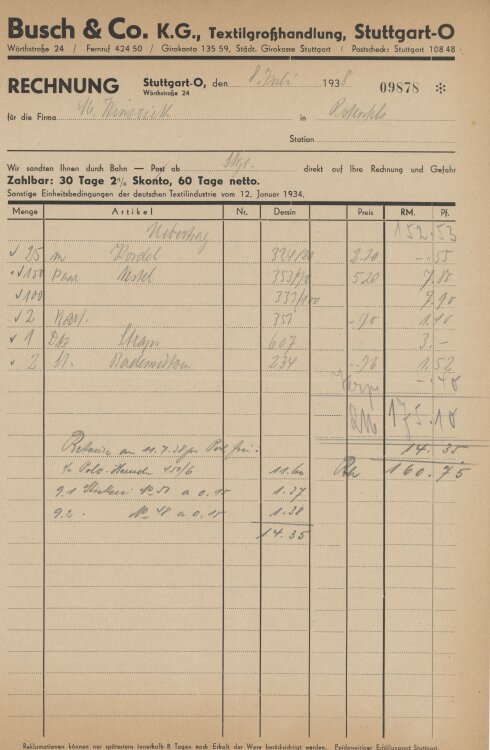 Busch & Co. K.G., Textilgroßhandlung, Stuttgart-O
Wörthstraße 24 / Fernruf 424 50 / Girokonto 135 59, Städt. Girokasse Stuttgart / Postscheck: Stuttgart 108 48
RECHNUNG Stuttgart-O, den 8. Juli 1938 09878 *
Wörthstraße 24
für die Firma in
Station
Wir sandten Ihnen durch Bahn — Post ab Stgt. direkt auf Ihre Rechnung und Gefahr
Zahlbar: 30 Tage 2% Skonto, 60 Tage netto.
Sonstige Einheitsbedingungen der deutschen Textilindustrie vom 12. Januar 1934.
Menge Artikel Nr. Dessin Preis RM. Pf.
Uebertrag 152.53
25 m Kordel 2.20 -.55
150 Paar Nestel 353/70 5.20 7.80
100 333/100 9.90
2 351 -.70 1.40
1 607 3.-
2 St. 234 -.76 1.52
-.40
RM 175.10
Retour am 11.7.38 14.35
Polo-Hemd 11.60 RM 160.75
9.1 a 0.15 1.37
9.2 No 48 a 0.15 1.38
14.35
Reklamationen können nur spätestens innerhalb 8 Tagen nach Erhalt der Ware berücksichtigt werden. Beiderseitiger Erfüllungsort Stuttgart.